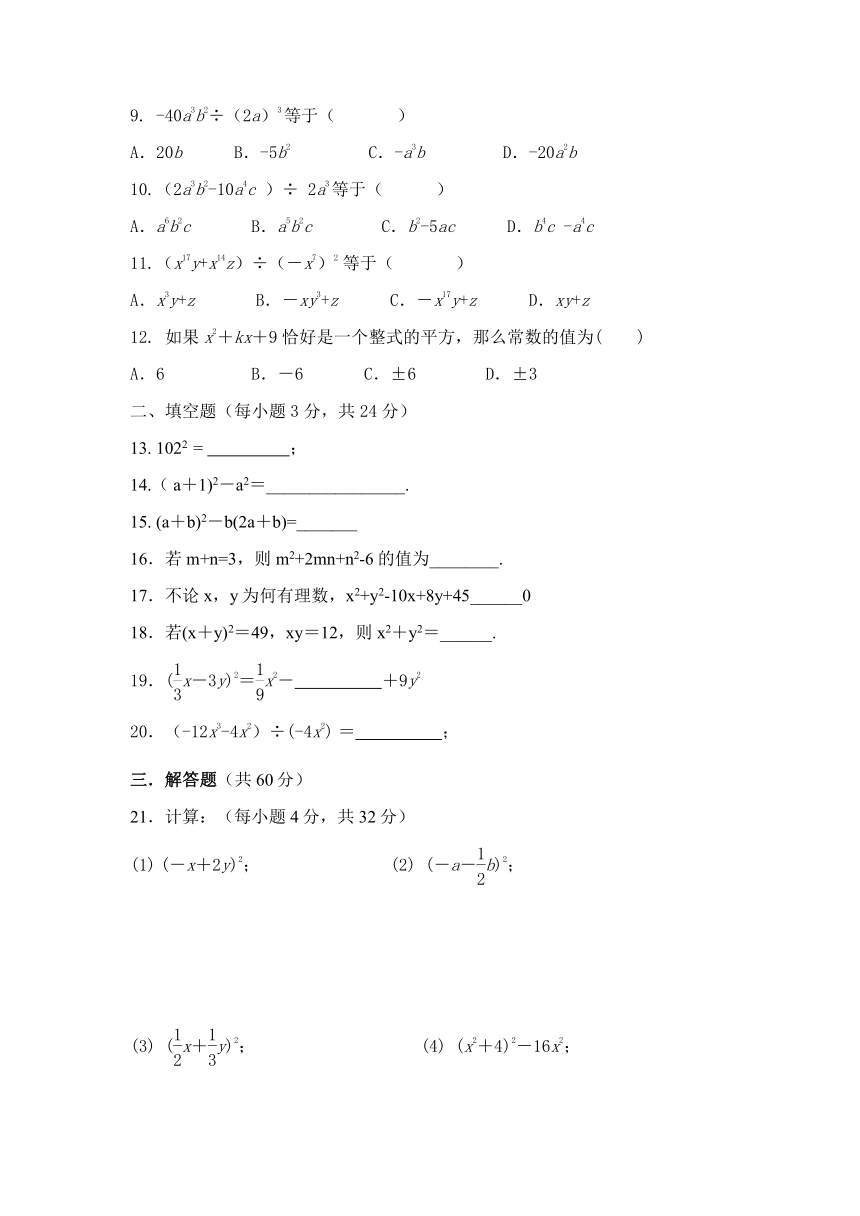 9. -40a³b²÷（2a）³等于（　　）
A．20b　B．-5b²　C．-a³b　D．-20a²b
10.（2a³b²-10a⁴c ）÷ 2a³等于（　　）
A．a⁶b²c　B．a⁵b²c　C．b²-5ac　D．b⁴c -a⁴c
11.（x¹⁷y+x¹⁴z）÷（－x⁷）² 等于（　　）
A．x³y+z　B．－xy³+z　C．－x¹⁷y+z　D．xy+z
12. 如果 x²＋kx＋9 恰好是一个整式的平方，那么常数的值为(　　)
A．6　B．－6　C．±6　D．±3
二、填空题（每小题 3 分，共 24 分）
13. 102² = ________；
14.（ a＋1)²－a²＝________________.
15. (a＋b)²－b(2a＋b)=_______
16．若 m+n=3，则 m²+2mn+n²-6 的值为________.
17．不论 x，y 为何有理数，x²+y²-10x+8y+45______0
18．若(x＋y)²＝49，xy＝12，则 x²＋y²＝______.
19．(1/3x－3y)²＝1/9x²－ ________ ＋9y²
20．（-12x³-4x²）÷(-4x²) ＝________；
三．解答题（共 60 分）
21．计算：（每小题 4 分，共 32 分）
(1) (－x＋2y)²；　(2) (－a－1/2b)²；
(3) (1/2x＋1/3y)²；　(4) (x²＋4)²－16x²；